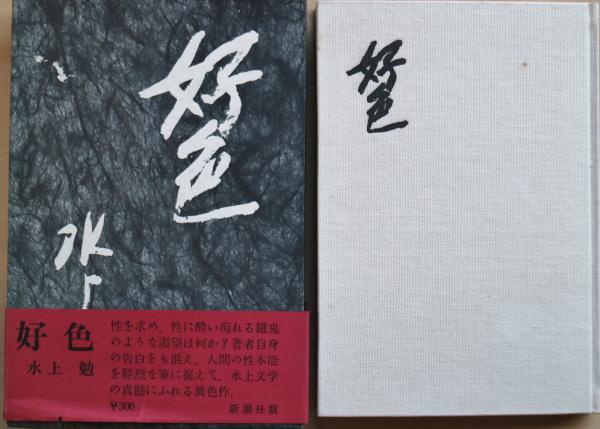 好色
水上
好色
水上 勉
性を求め、性に酔い痴れる餓鬼
のような渇望は何か?著者自身
の告白をも混え、人間の性本能
を鮮烈な筆に捉えて、水上文学
の真髄にふれる異色作。
¥300
新潮社版
好色